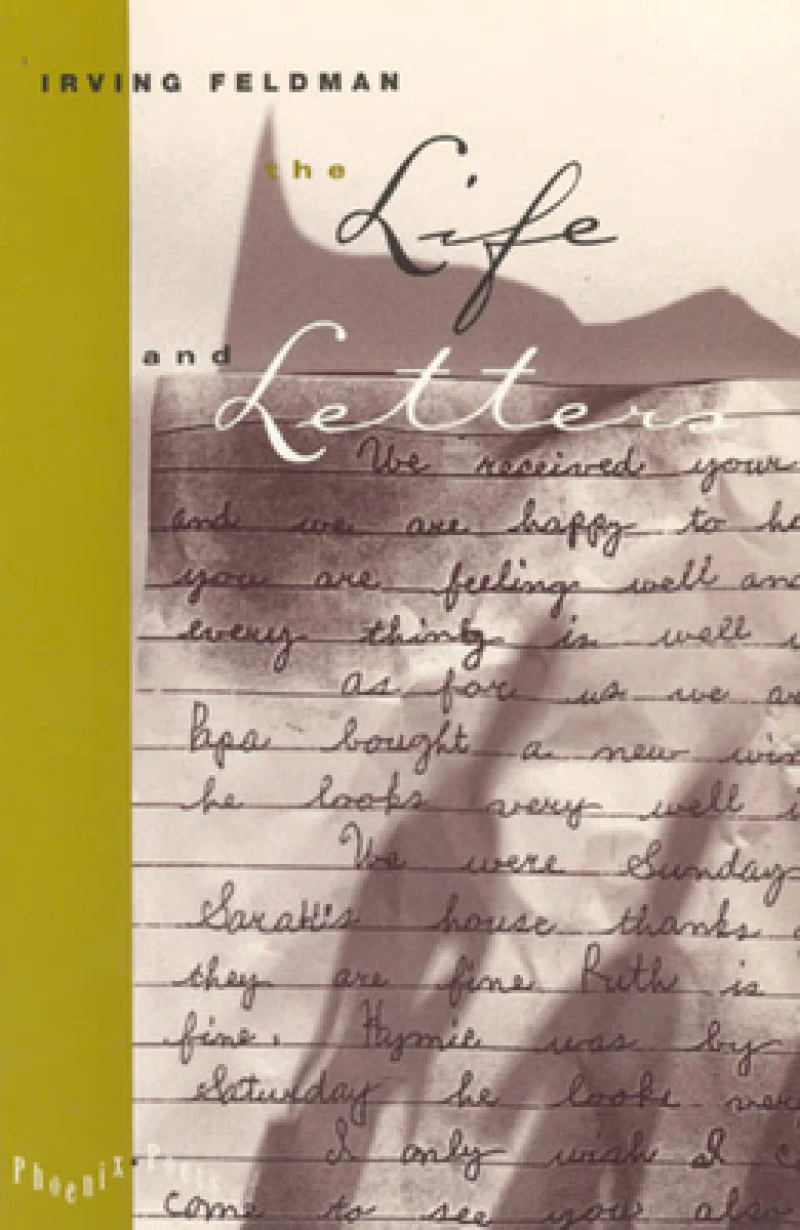 IRVING FELDMAN
the Life
and Letters
We received your
and we are happy to
you are feeling well and
every thing is well
as for us we
Papa bought a new
he looks very well
We were Sunday
Sarah's house thanks
they are fine Ruth is
fine. Hymie was by
Saturday he looks very
I only wish I
come to see you also
Phoenix Poets